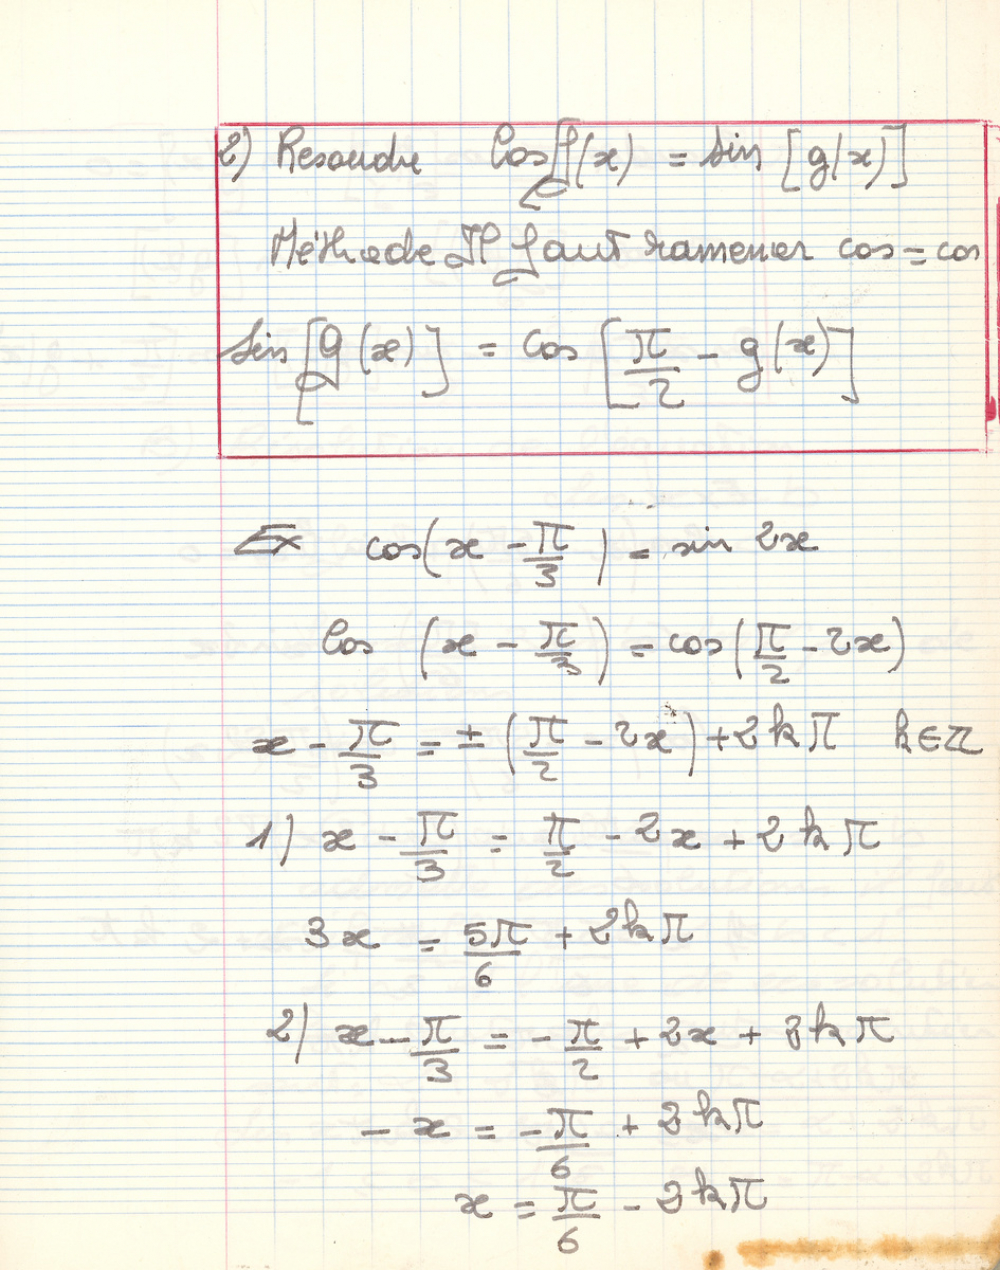 2) Resoudre Cos[f(x) = sin [g(x)]
Méthode Il faut ramener cos = cos
Sin[g(x)] = cos [π/2 - g(x)]
Ex cos(x - π/3) = sin 2x
Cos (x - π/3) = cos(π/2 - 2x)
x - π/3 = ± (π/2 - 2x) + 2kπ k∈ℤ
1) x - π/3 = π/2 - 2x + 2kπ
3x = 5π/6 + 2kπ
2) x - π/3 = - π/2 + 2x + 2kπ
- x = - π/6 + 2kπ
x = π/6 - 2kπ